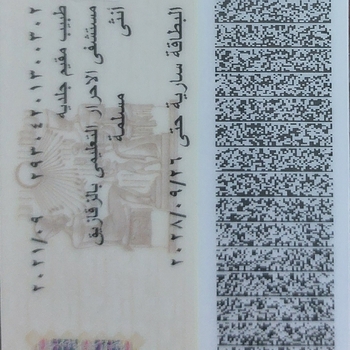 ٢٠٢١/٠٩ ٢٩٣٠٤٢٠١٣٠٠٣٠٢
طبيب مقيم جلديه
مستشفى الاحرار التعليمى بالزقازيق
أنثى مسلمة
البطاقة سارية حتى ٢٠٢٨/٠٩/٢٦